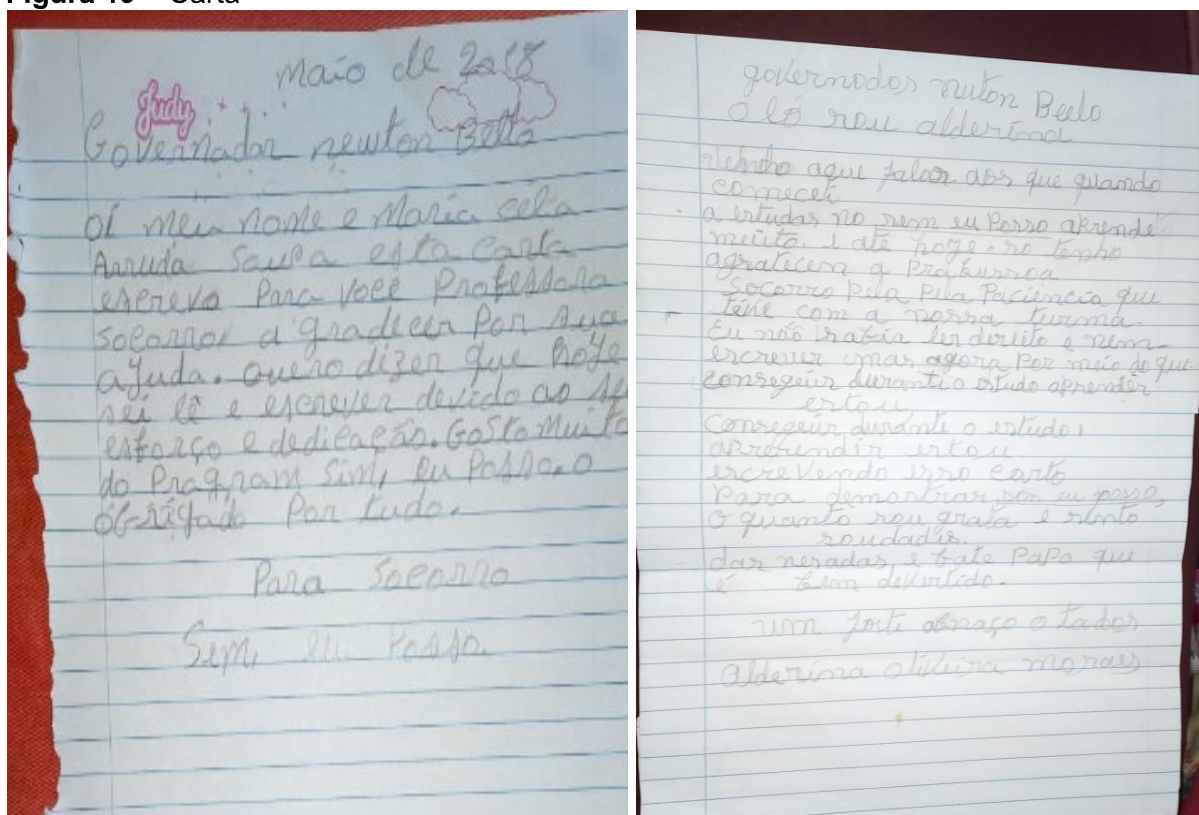 Figura 19 – Carta
maio de 2018
Judy
Governador newton Bello
Oi meu nome e Maria celia
Arruda Sousa esta Carta
escrevo Para voce Professora
Socorro, a gradecer Por sua
ajuda. Quero dizer que hoje
sei lê e escrever devido ao seu
esforço e dedicação. Gosto Muito
do Program Sim, eu Posso. O
obrigado Por tudo.
Para Socorro
Sem, eu Posso.
governodos niuton Beelo
Olá sou alderina
venho aque falar aos que quando
comecei
a estudas no sem eu Posso aprende
muito. e até hoge so tenho
agratecem a
Socorro Pela Pela Paciencia que
teve com a nossa turma.
Eu não sabia ler dereito e nem
escrever mas agora Por meio do que
consegeur durantio estudo aprender
estou
consegeur durante o estudo,
aprerendir estou
escrevendo esso carto
Para demonstrar sem eu posso,
o quanto sou grata e sinto
soudades.
das nesadas, e bate PaPo que
é bem devertido.
um forte abraço a tados
alderina oliveira moraes